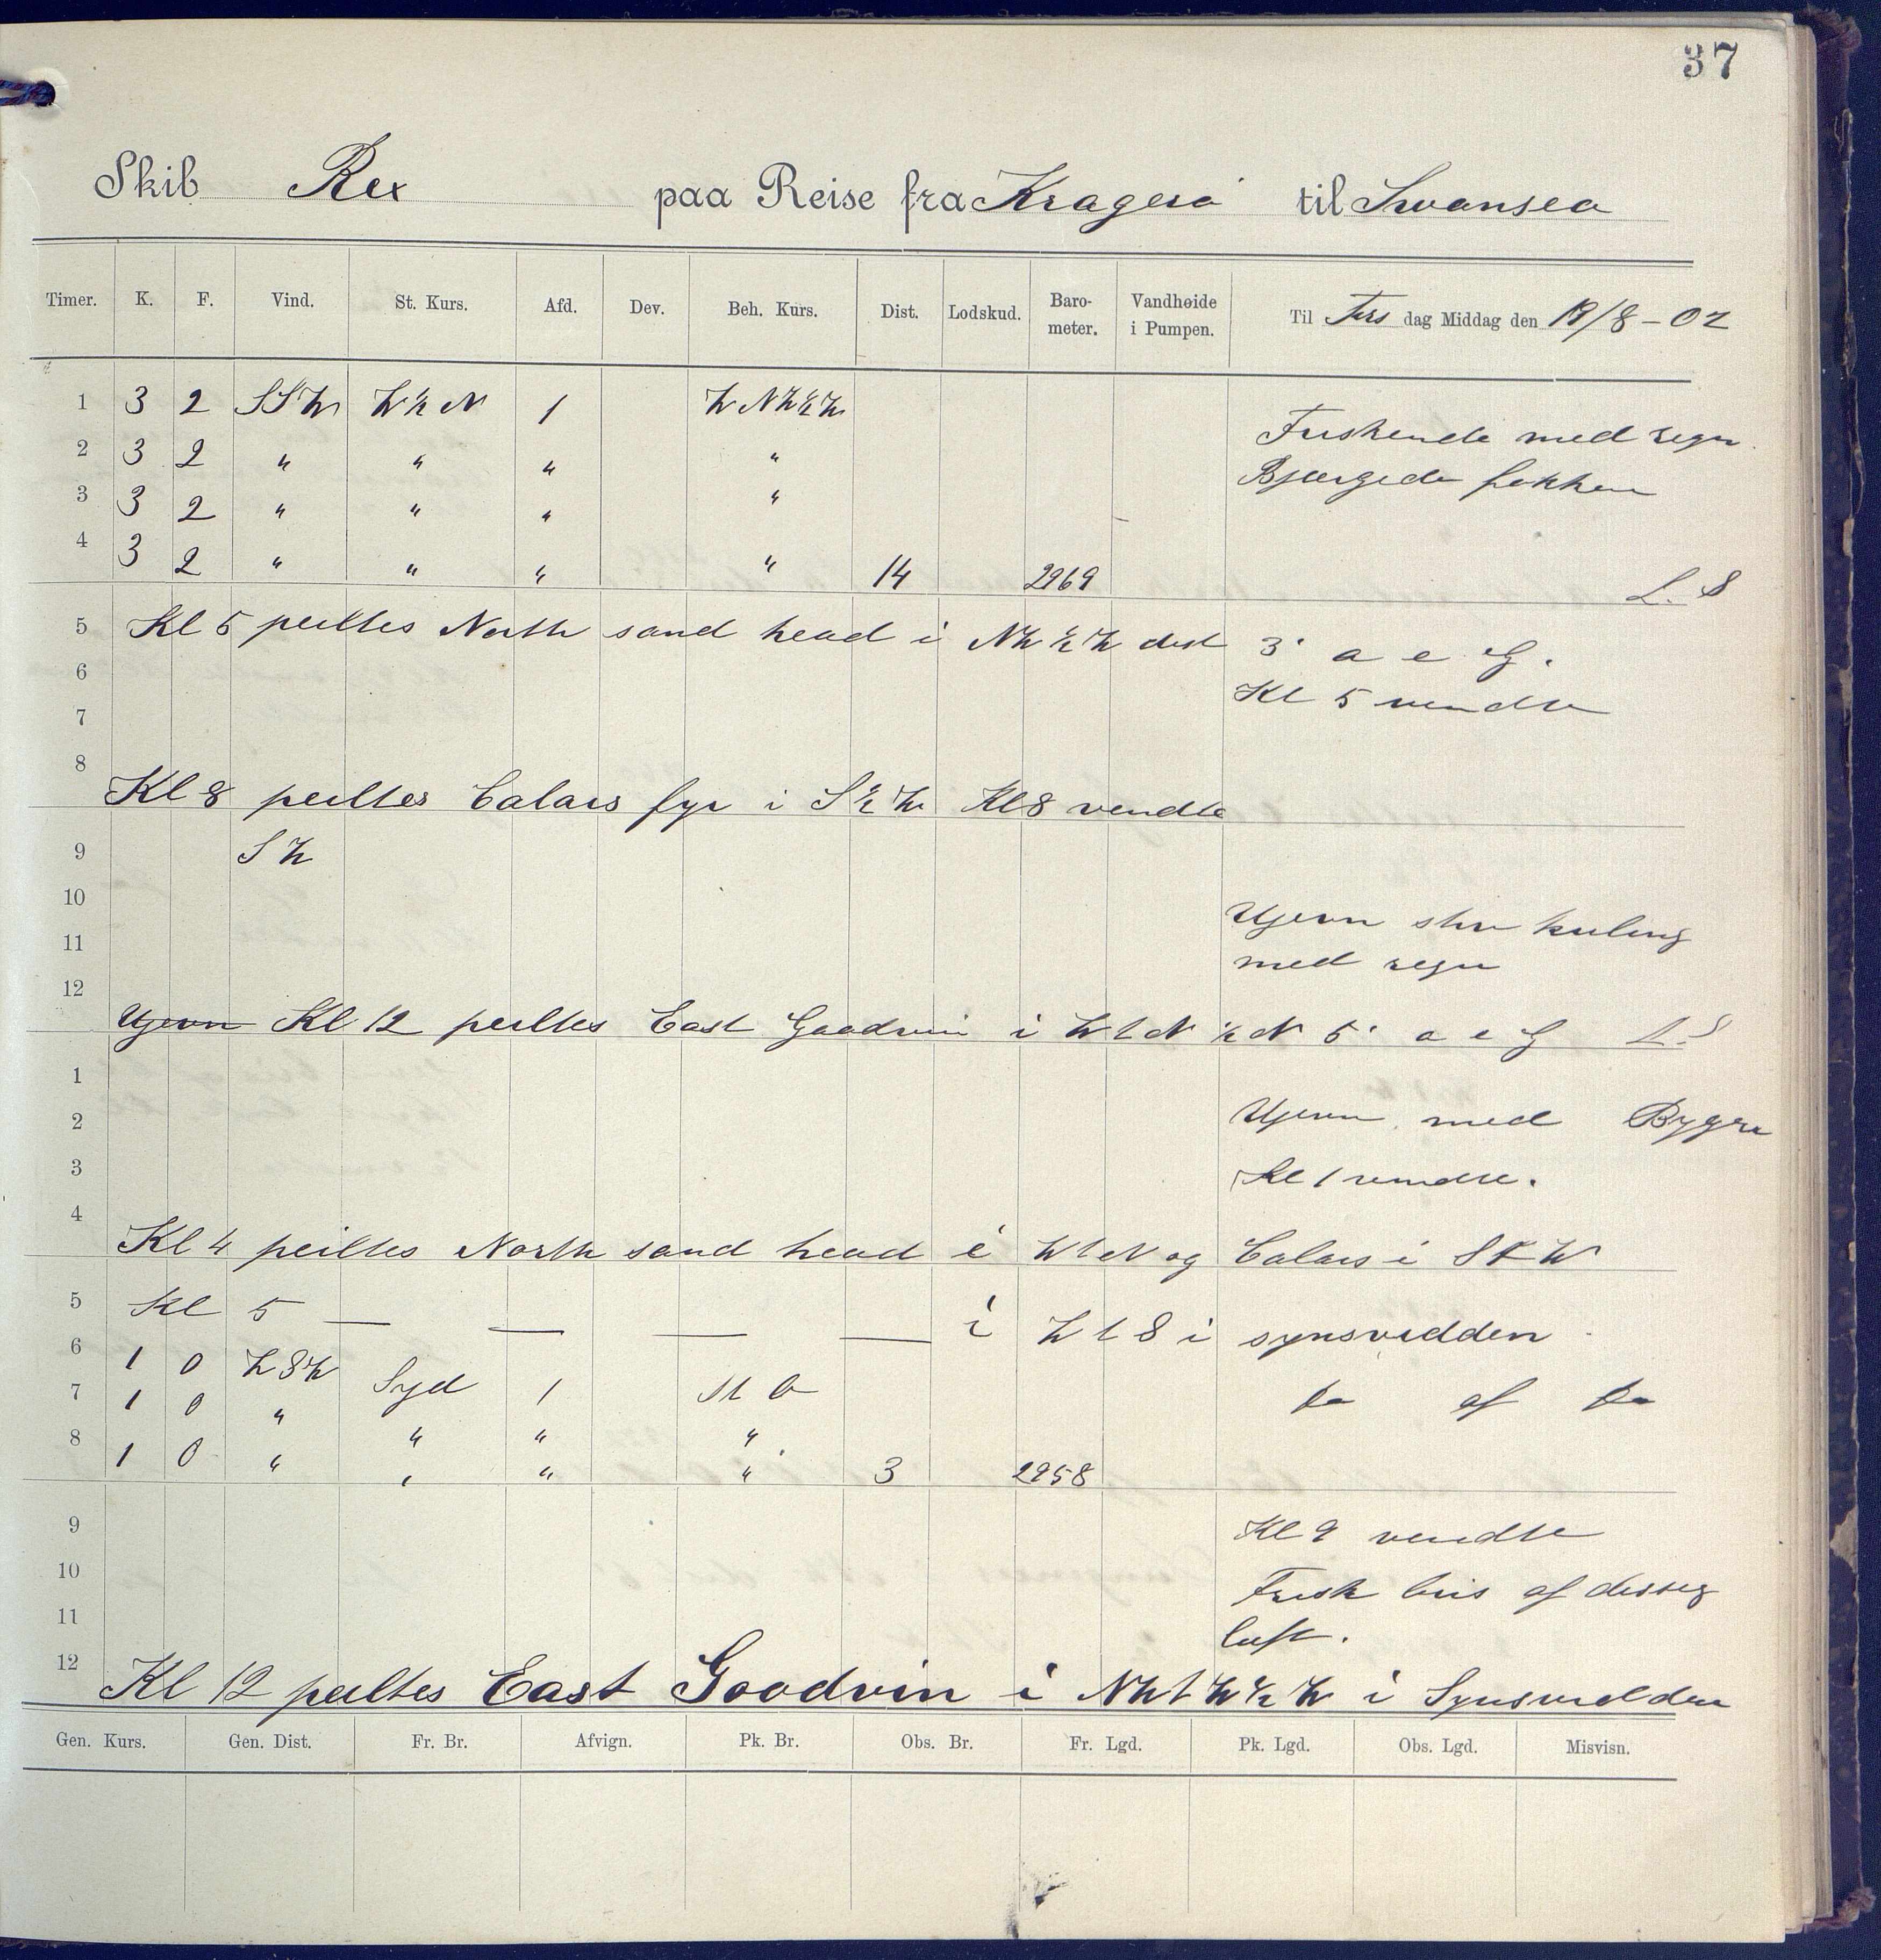 37
Skib Rex paa Reise fra Kragerö til Swansea
Timer. K. F. Vind. St. Kurs. Afd. Dev. Beh. Kurs. Dist. Lodskud. Barometer. Vandhøide i Pumpen. Til Tirs dag Middag den 19/8 - 02
1 3 2 SSW W½N 1 WNW½W
Friskende med regn.
2 3 2 " " " "
Bjærgede fokken
3 3 2 " " " "
4 3 2 " " " " 14 2969 L. S
5 Kl 5 peiltes North sand head i NW½W dist 3' a e G.
6 Kl 5 vendte
7
8 Kl 8 peiltes Calais fyr i S½W Kl 8 vendte
9 SW
10 Ujevn stiv kuling
11 med regn
12 Ujevn Kl 12 peiltes East Goodvin i W t N ½ N 5' a e G L. S
1
2 Ujevn med Bygre
3 Kl 1 vendte.
4 Kl 4 peiltes North sand head i W t N og Calais i
5 Kl 5 — — — — i W t S i synsvidden
6 1 0 WSW Syd 1 St O
7 1 0 " " " "
8 1 0 " " " " 3 2958
9 Kl 9 vendte
10 Frisk bris af disseg
11 luft.
12 Kl 12 peiltes East Goodvin i NW t W ½ W i Synsvidden
Gen. Kurs. Gen. Dist. Fr. Br. Afvign. Pk. Br. Obs. Br. Fr. Lgd. Pk. Lgd. Obs. Lgd. Misvisn.